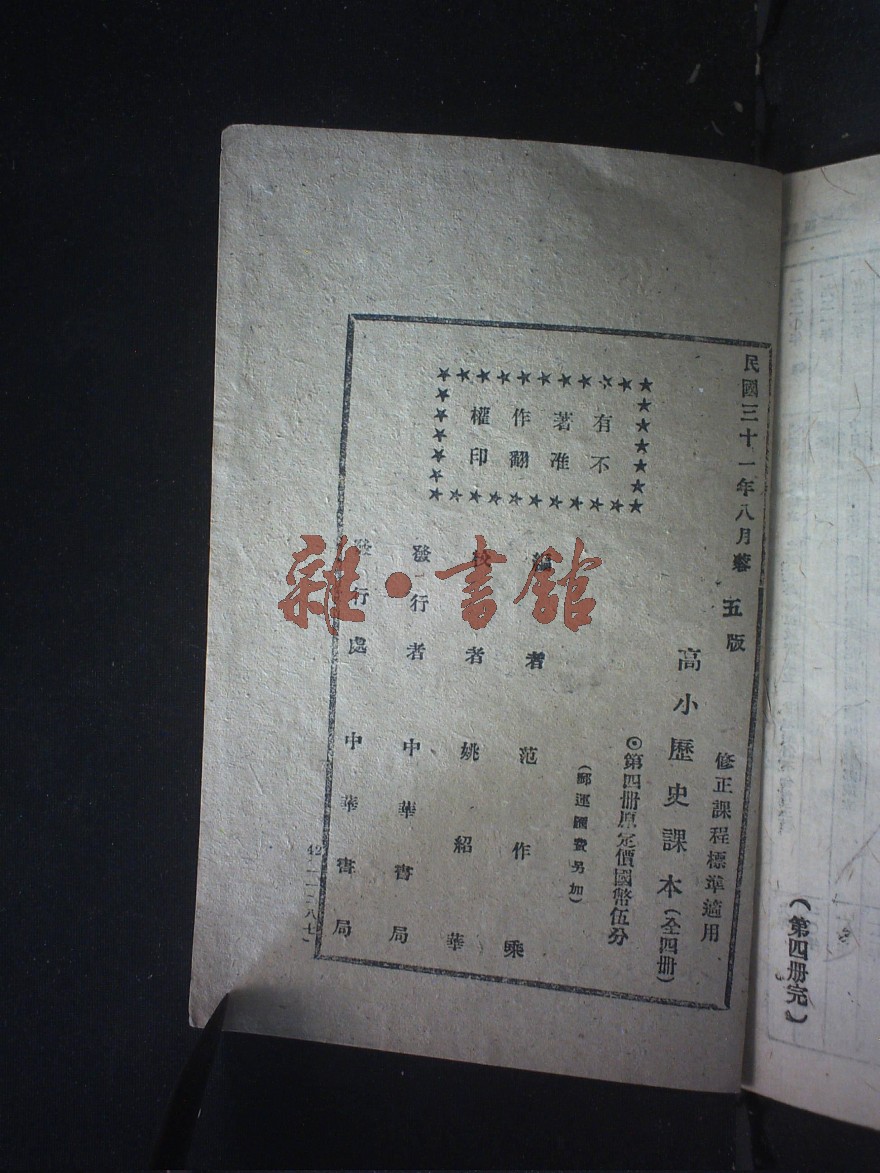 （第四册完）
民國三十一年八月蓉五版
修正課程標準適用
高小歷史課本（全四冊）
◎第四冊原定價國幣伍分
（郵運匯費另加）
有著作權
不准翻印
編者 范作乘
校者 姚紹華
發行者 中華書局
發行處 中華書局
雜·書館